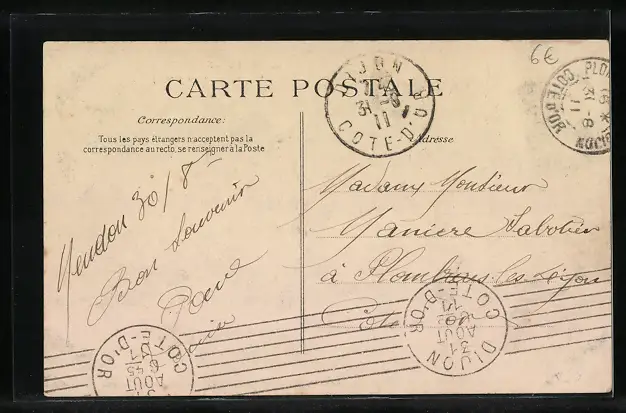 6€
CARTE POSTALE
Correspondance:
Tous les pays étrangers n'acceptent pas la
correspondance au recto, se renseigner à la Poste
Adresse
DIJON
31-8
11
COTE-D'OR
PLOM
31-8
11
COTE D'OR
30/8
Bon Souvenir
Madame Monsieur
Maniere Sabotier
à Plombières-les-Dijon
Côte
DIJON
31
AOUT
COTE-D'OR
AOUT
COTE-D'OR